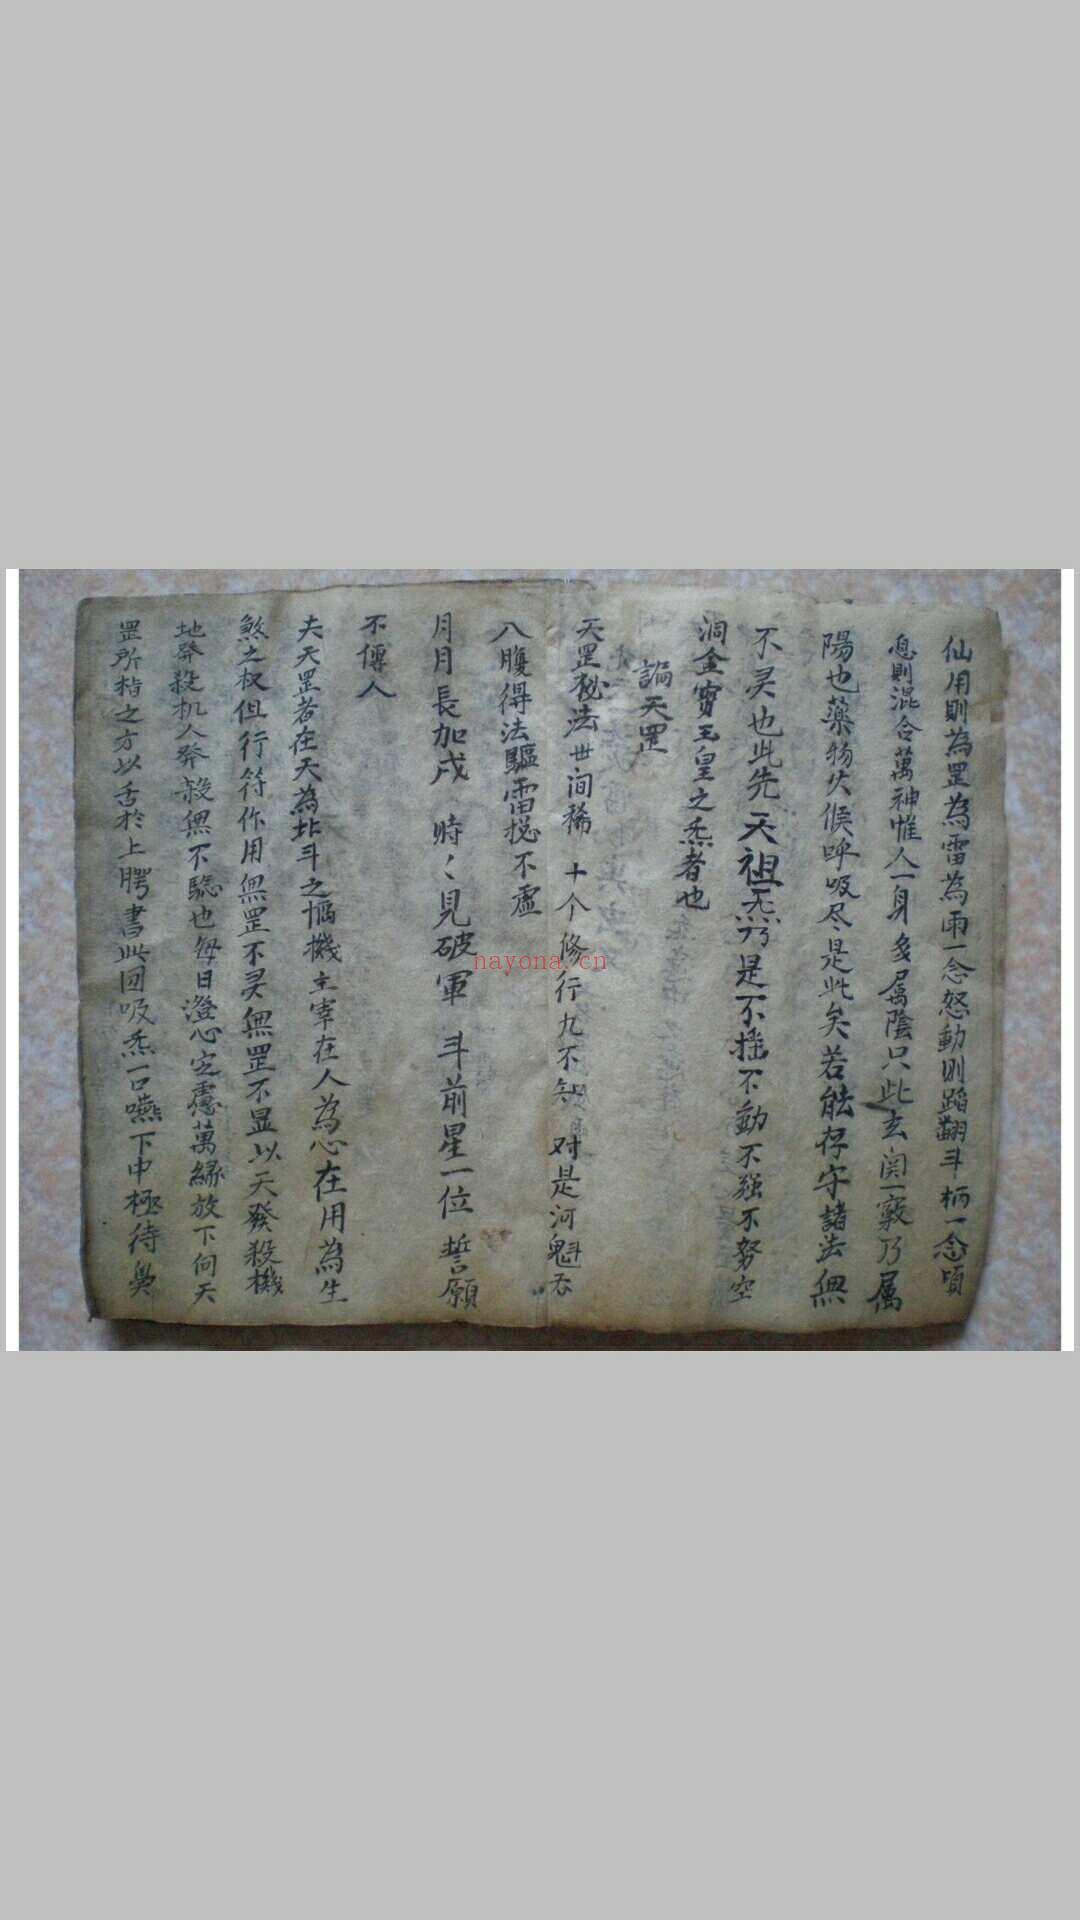 仙用則為罡為雷為雨一念怒動則蹈翻斗柄一念頃
息則混合萬神惟人一身多属陰只此玄関一竅乃属
陽也藥物火候呼吸尽是此矣若能存守諸法無
不灵也此先天祖炁乃是不摇不動不强不努空
洞金寳玉皇之炁者也
謆天罡
天罡秘法世间稀 十个修行九不知 对是河魁吞
入腹得法驅雷揔不虛
月月長加戌 時〻見破軍 斗前星一位 誓願
不傳人
夫天罡者在天為北斗之樞機主宰在人為心在用為生
煞之权但行符作用無罡不灵無罡不显以天發殺機
地發殺机人發殺無不驗也每日澄心定慮萬緣放下向天
罡所指之方以舌於上腭書此囬吸炁一口嚥下中極待鼻
hayona.cn